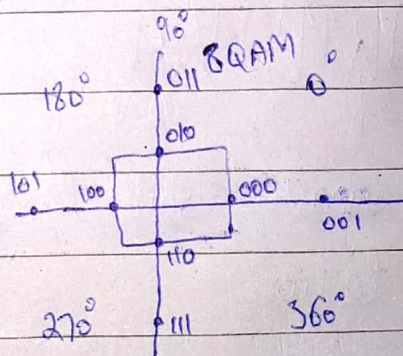 90°
011 8QAM
180° 0°
010
101 100 000
001
110
270° 111 360°